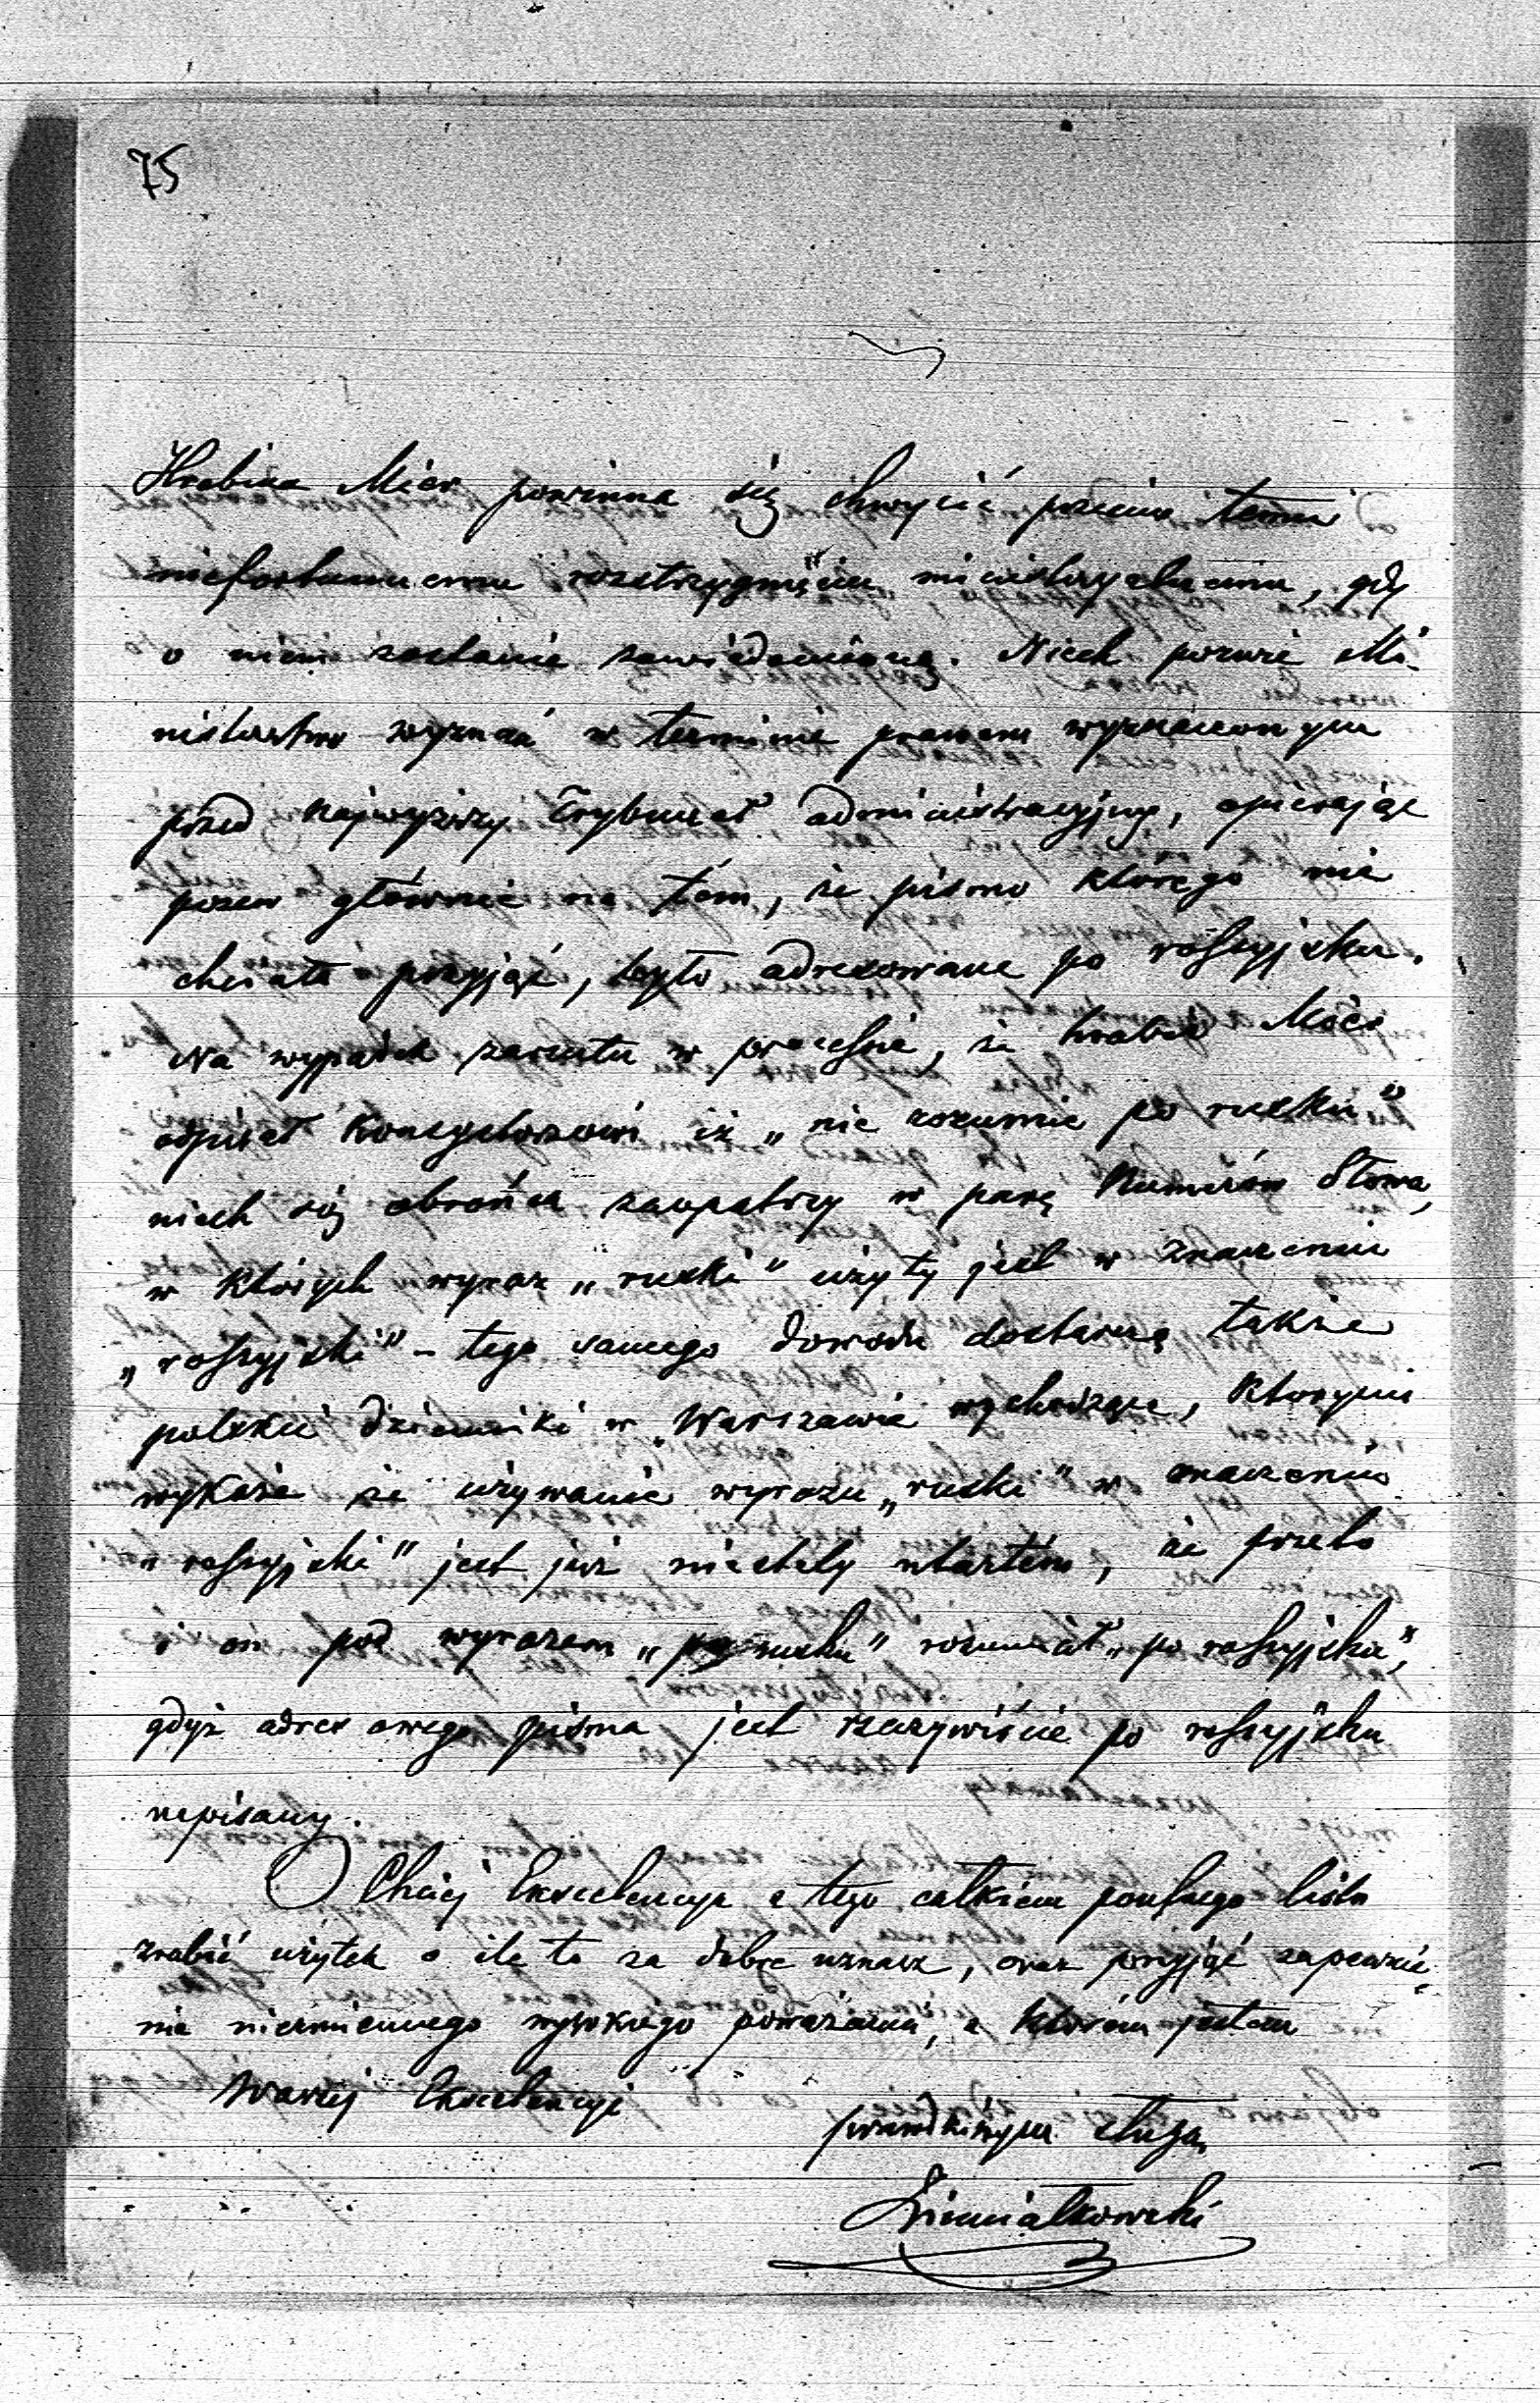 75
Hrabina Mier powinna się chwycić przeciw temu
niefortunnemu rozstrzygnięciu ministeryalnemu, gdy
o niem zostanie zawiadomioną. Niech pozwie Mi-
nisterstwo wyznań w terminie prawem wyznaczonym
przed najwyższy Trybunał administracyjny, opierając
pozew głównie na tém, że pismo którego nie
chciała przyjąć, było adresowane po rossyjsku.
Na wypadek zarzutu w procesie, że hrabia Mier
odpisał Konsystorzowi iż „nie rozumie po rusku"
niech się obrońca zaopatrzy w parę Numerów Słowa,
w których wyraz „ruski" użyty jest w znaczeniu
„rossyjski" – tego samego dowodu dostarczą także
polskie dzienniki w Warszawie wychodzące, którymi
wykaże że używanie wyrazu „ruski" w znaczeniu
„rossyjski" jest już niestety utartém, że przeto
i on pod wyrazem „po rusku" rozumiał „po rossyjsku",
gdyż adres owego pisma jest rzeczywiście po rossyjsku
napisany.
Chciej Excellencyo z tego całkiem poufnego listu
zrobić użytek o ile to za dobre uznasz, oraz przyjąć zapewnie-
nie niezmiennego wysokiego poważania, z którém jestem
Waszej Excellencyi
prawdziwym sługą
Ziemiałkowski